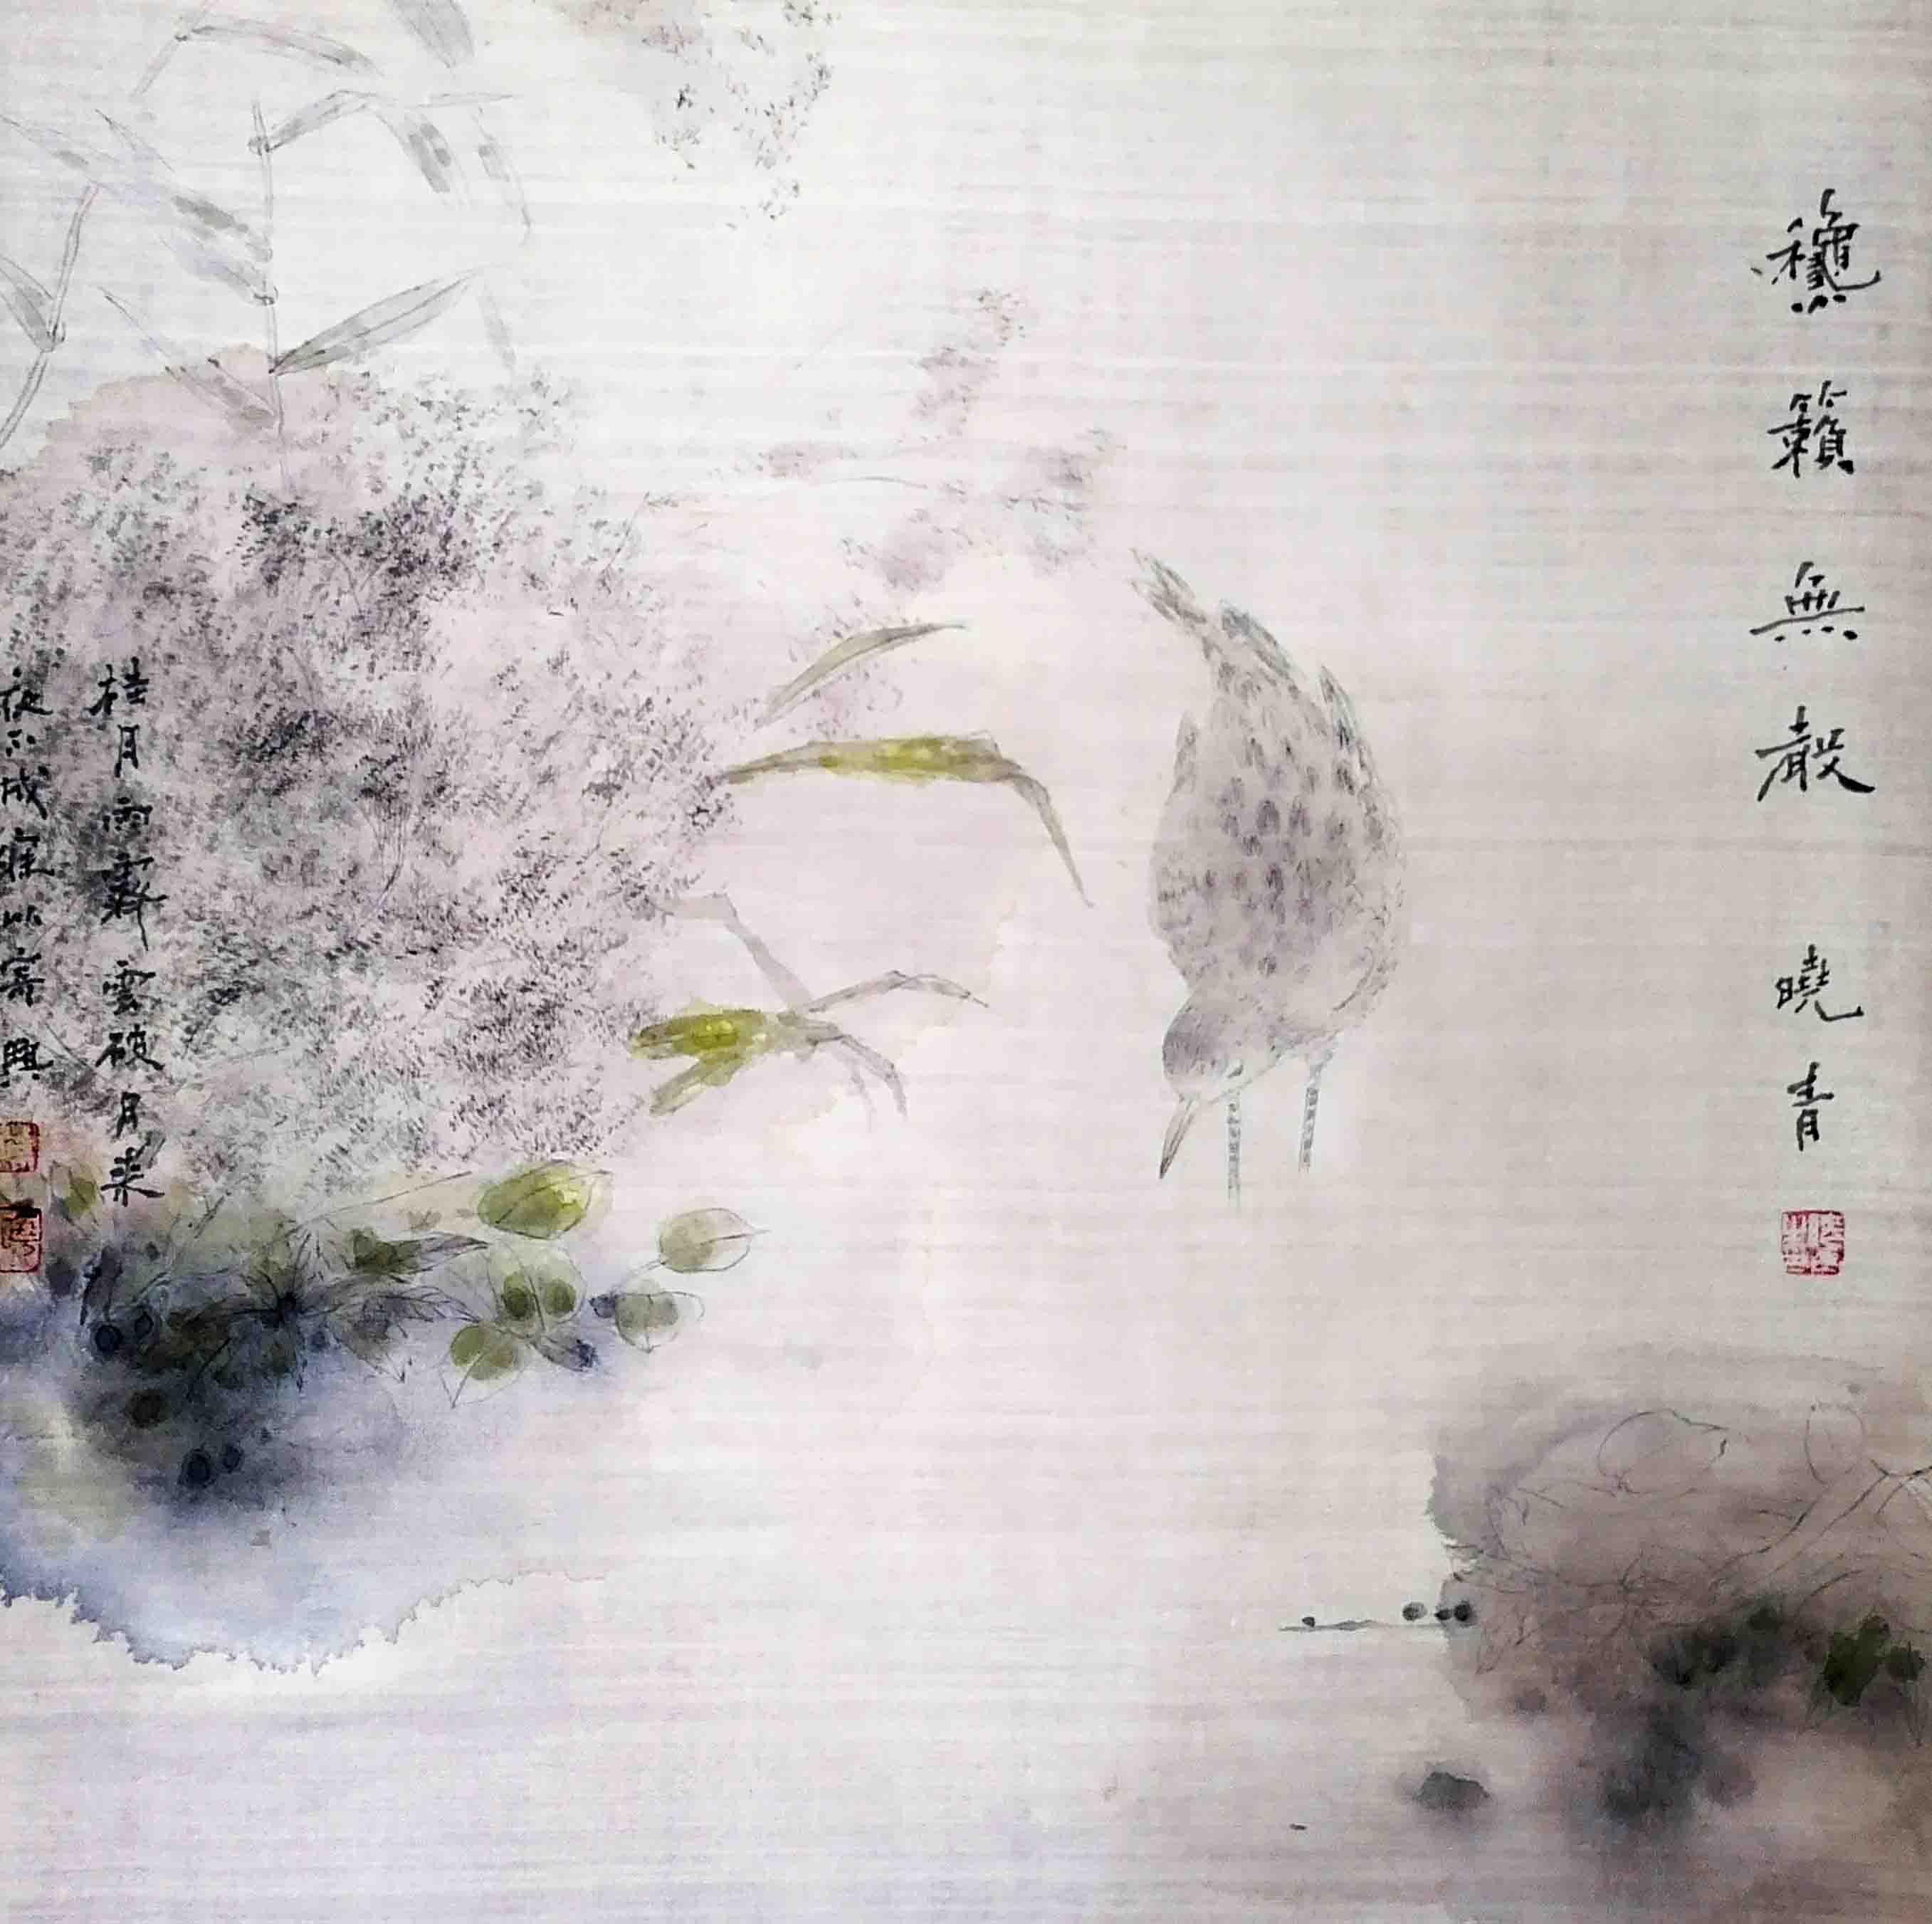 龝籟無殸 曉青
桂月雨霽雲破月来
夜不成寐以寄興